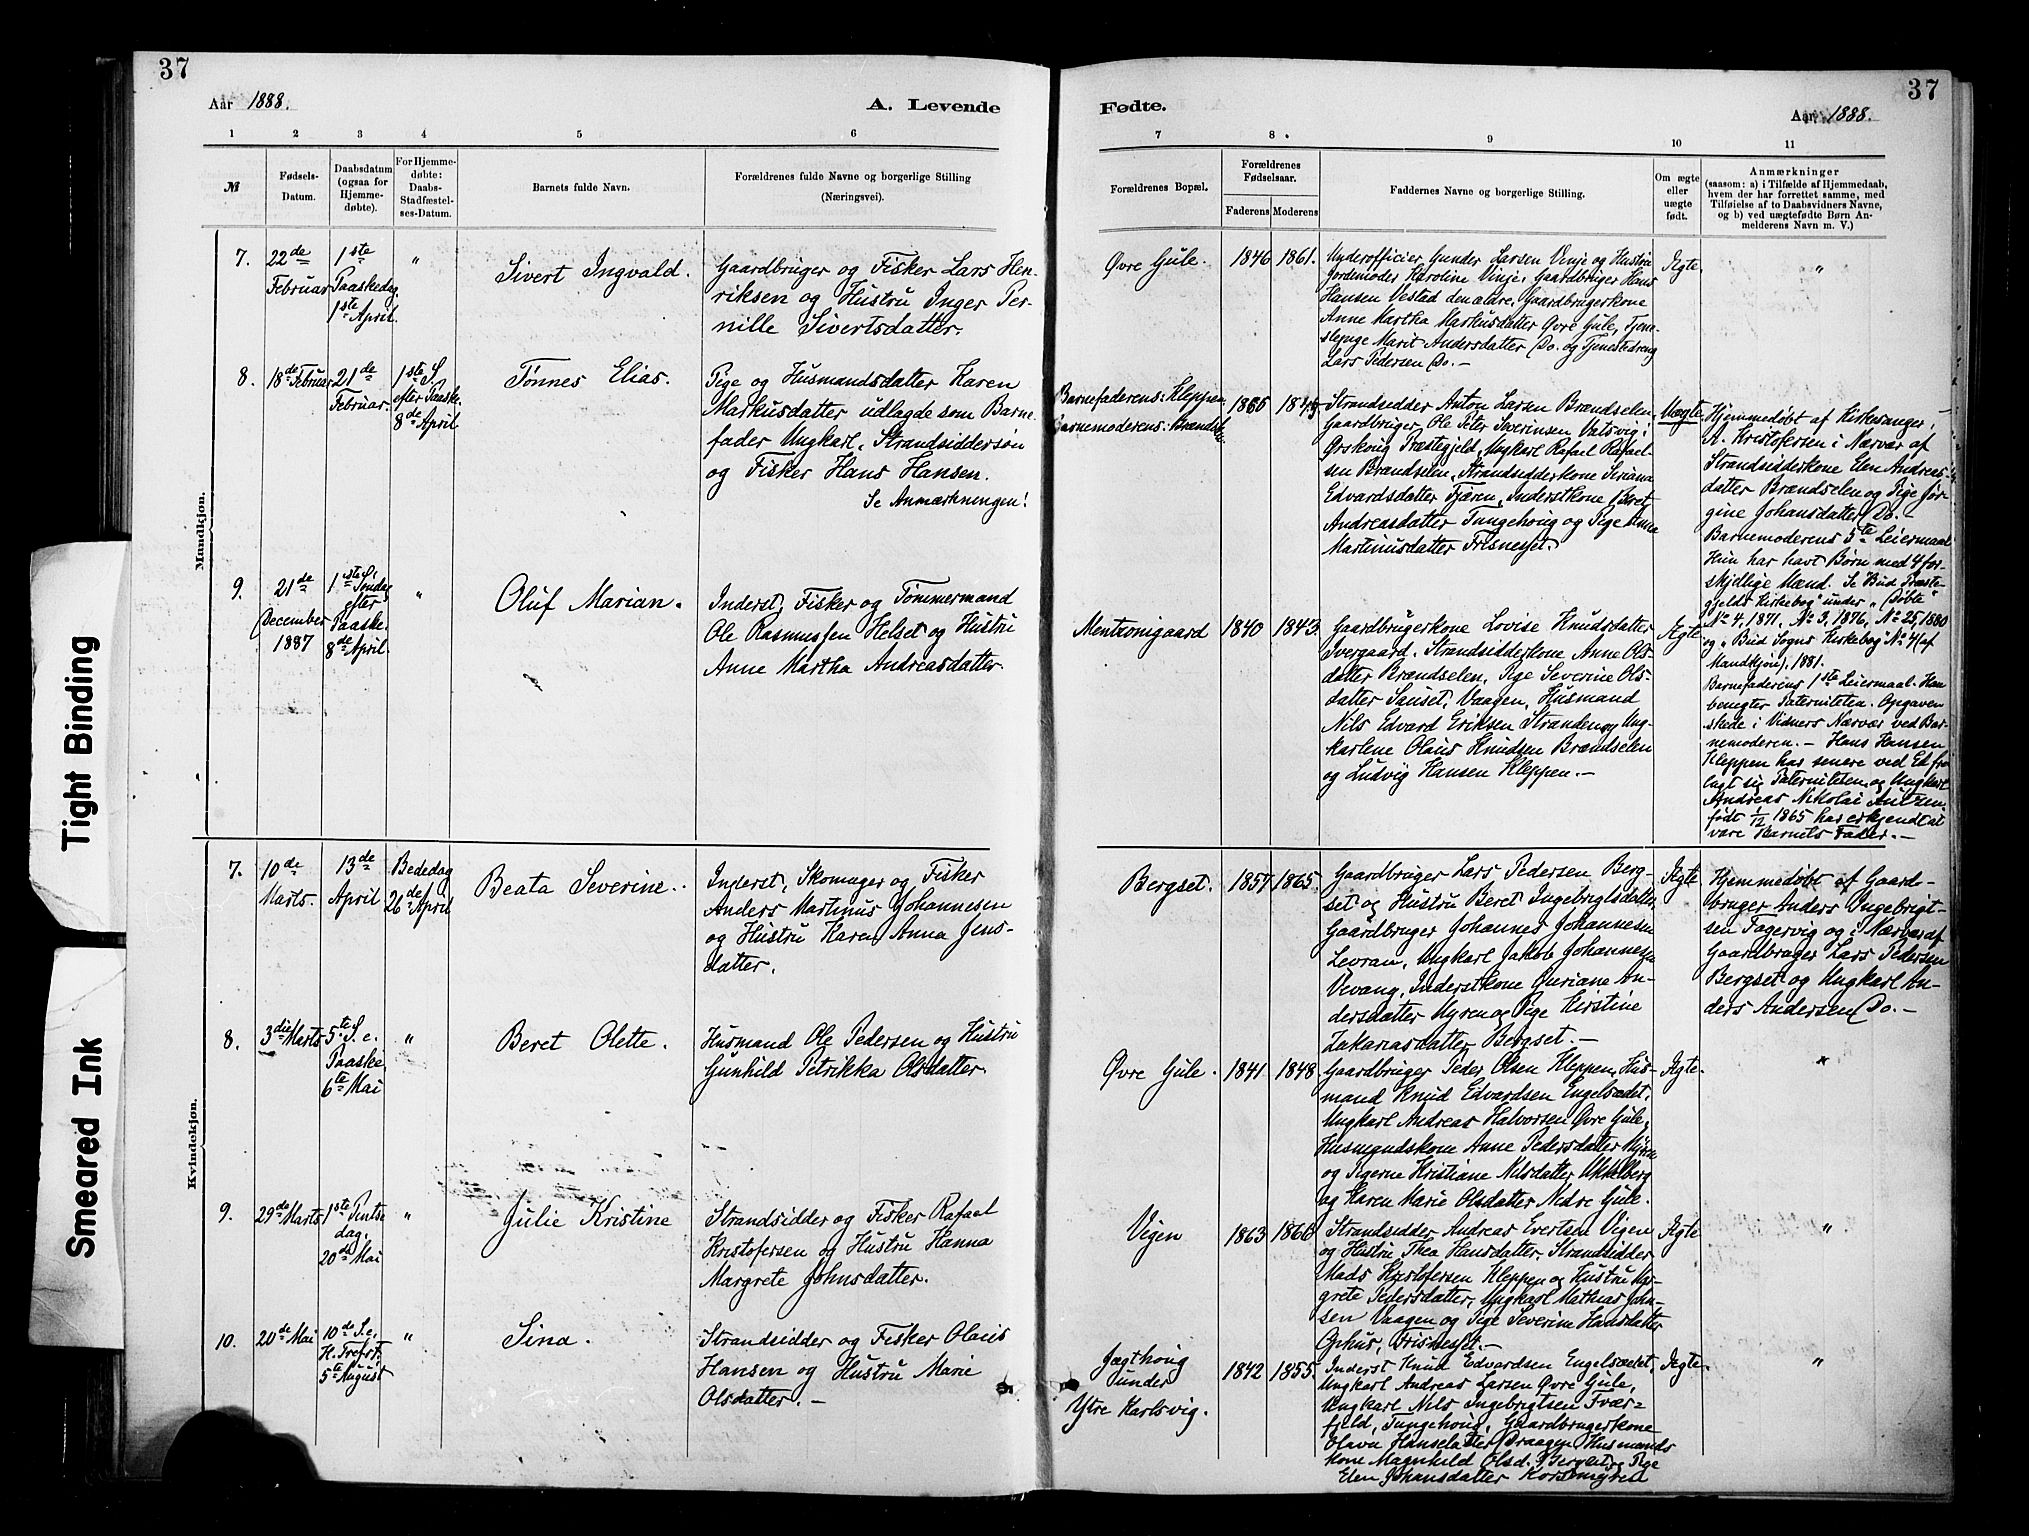 37
37
Aar 1888.
A. Levende
Fødte.
Aar 1888.
1 2 3 4 5 6 7 8 9 10 11
№
Fødsels-
Datum.
Daabsdatum
(ogsaa for
Hjemme-
døbte).
For Hjemme-
døbte:
Daabs-
Stadfæstel-
ses-Datum.
Barnets fulde Navn.
Forældrenes fulde Navne og borgerlige Stilling
(Næringsvei).
Forældrenes Bopæl.
Forældrenes
Fødselsaar.
Faderens
Moderens
Faddernes Navne og borgerlige Stilling.
Om ægte
eller
uægte
født.
Anmærkninger
(saasom: a) i Tilfælde af Hjemmedaab,
hvem der har forrettet samme, med
Tilføielse af to Daabsvidners Navne,
og b) ved uægtefødte Børn An-
melderens Navn m. V.)
Mandkjøn.
7.
22de
Februar
1ste
Paaskedag
1ste April.
"
Sivert Ingvald.
Gaardbruger og Fisker Lars Hen-
riksen og Hustru Inger Per-
nille Sivertsdatter.
Øvre Gule.
1846
1861.
Underofficier Gunder Larsen Vinje og Hustru
Jordemoder Karoline Vinje, Gaardbruger Hans
Hansen Vestad den ældre, Gaardbrugerkone
Anne Martha Markusdatter Øvre Gule, Tjene-
stepige Marit Andersdatter Do. og Tjenestedreng
Lars Pedersen Do. —
Ægte.
"
8.
18de Februar
21de
Februar.
1ste S.
efter Paaske.
8de April
Tønnes Elias.
Pige og Husmandsdatter Karen
Markusdatter udlagde som Barne-
fader Ungkarl, Strandsiddersøn
og Fisker Hans Hansen.
Se Anmærkningen!
Barnefaderens: Kleppen.
Barnemoderens: Brændselen
1866
1845
Strandsidder Anton Larsen Brændselen,
Gaardbruger Ole Peter Severinsen Vatsvig i
Ørskoug Præstegjeld, Ungkarl Rafael Rafael-
sen Brændselen, Strandsidderkone Seriana
Edvardsdatter Tjæren, Inderstkone Beret
Andreasdatter Tungehoug og Pige Anna
Martinusdatter Frisnesset.
Uægte
Hjemmedøbt af Kirkesanger,
A. Kristofersen i Nærvær af
Strandsidderkone Elen Andreas-
datter Brændselen og Pige Jør-
gine Johansdatter Do.
Barnemoderens 5te Leiermaal
Hun har havt Børn med 4 for-
skjellige Mænd. Se "Bud Præste-
gjelds Kirkebog" under "Døbte"
№ 4, 1871, № 3, 1876, № 25, 1880
og "Bud Sogns Kirkebog" № 4 (af
Mandkjøn), 1881.
Barnefaderens 1ste Leiermaal. Han
benegter Paterniteten. Opgaven
skede i Vidners Nærvær ved Bar-
nemoderen. — Hans Hansen
Kleppen har senere ved Ed fra
lagt sig Paterniteten, og Ungkarl
Andreas Nikolai
født 1/12 1865 har erkjendt at
være Barnets Fader. —
9.
21de
December
1887
1ste Søndag
efter
Paaske.
8de April.
"
Oluf Marian.
Inderst, Fisker og Tømmermand
Ole Rasmussen Helset og Hustru
Anne Martha Andreasdatter.
Mentzonigaard
1840
1843.
Gaardbrugerkone Lovise Knudsdatter
Ivergaard, Strandsidderkone Anne Ols-
datter Brændselen, Pige Severine Ols-
datter Sauset, Vaagen, Husmand
Nils Edvard Eriksen Stranden og Ung-
karlene Olaus Knudsen Brændselen
og Ludvig Hansen Kleppen. —
Ægte
Kvindekjøn.
7.
10de
Marts.
13de
April
Bededag
26de April
Beata Severine.
Inderst, Skomager og Fisker
Anders Martinus Johannesen
og Hustru Karen Anna Jens-
datter.
Bergset.
1857
1865.
Gaardbruger Lars Pedersen Berg-
set og Hustru Beret Ingebrigtsdatter,
Gaardbruger Johannes Johannesen
Levran, Ungkarl Jakob Johannesen
Vevang, Inderstkone Guriane An-
dersdatter Myren og Pige Kirstine
Zakariasdatter Bergset. —
Ægte
Hjemmedøbt af Gaard-
bruger Anders Ingebrigt-
sen Fagervig og i Nærvær af
Gaardbruger Lars Pedersen
Bergset og Ungkarl An-
ders Andersen Do. —
8.
3die Marts
5te S. e.
Paaske
6te Mai
"
Beret Olette.
Husmand Ole Pedersen og Hustru
Gunhild Petrikka Olsdatter.
Øvre Gule.
1841
1848.
Gaardbruger Peder Olsen Kleppen, Hus-
mand Knud Edvardsen Engelsædet,
Ungkarl Andreas Halvorsen Øvre Gule,
Husmandskone Anne Pedersdatter Myren
og Pigerne Kristiane Nilsdatter
og Karen Marie Olsdatter Nedre Gule.
Ægte.
"
9.
29de Marts
1ste Pintse
dag.
20de Mai
"
Julie Kristine
Strandsidder og Fisker Rafael
Kristofersen og Hustru Hanna
Margrete Johnsdatter.
Vigen
1863
1866
Strandsidder Andreas Evertsen Vigen
og Hustru Thea Hansdatter, Strandsidder
Mads Kristofersen Kleppen og Hustru Mar-
grete Pedersdatter, Ungkarl Mathias John-
sen Vaagen og Pige Severine Hansdatter
Ophus, Frisnesset. —
Ægte
"
10.
20de Mai
10de S. e.
H. Trefst.
5te August
"
Sina.
Strandsidder og Fisker Olaus
Hansen og Hustru Marie
Olsdatter. —
Jægthoug
under
Ytre Karlsvig.
1842
1855.
Inderst Knud Edvardsen Engelsædet,
Ungkarl Andreas Larsen Øvre Gule,
Ungkarl Nils Ingebrigtsen Tvær-
fjeld, Tungehoug, Gaardbrugerkone
Olava Hansdatter Draagen, Husmands
kone Magnhild Olsd. Bergset og Pige
Elen Johansdatter Korsmyren
Ægte.
"
Tight Binding
Smeared Ink